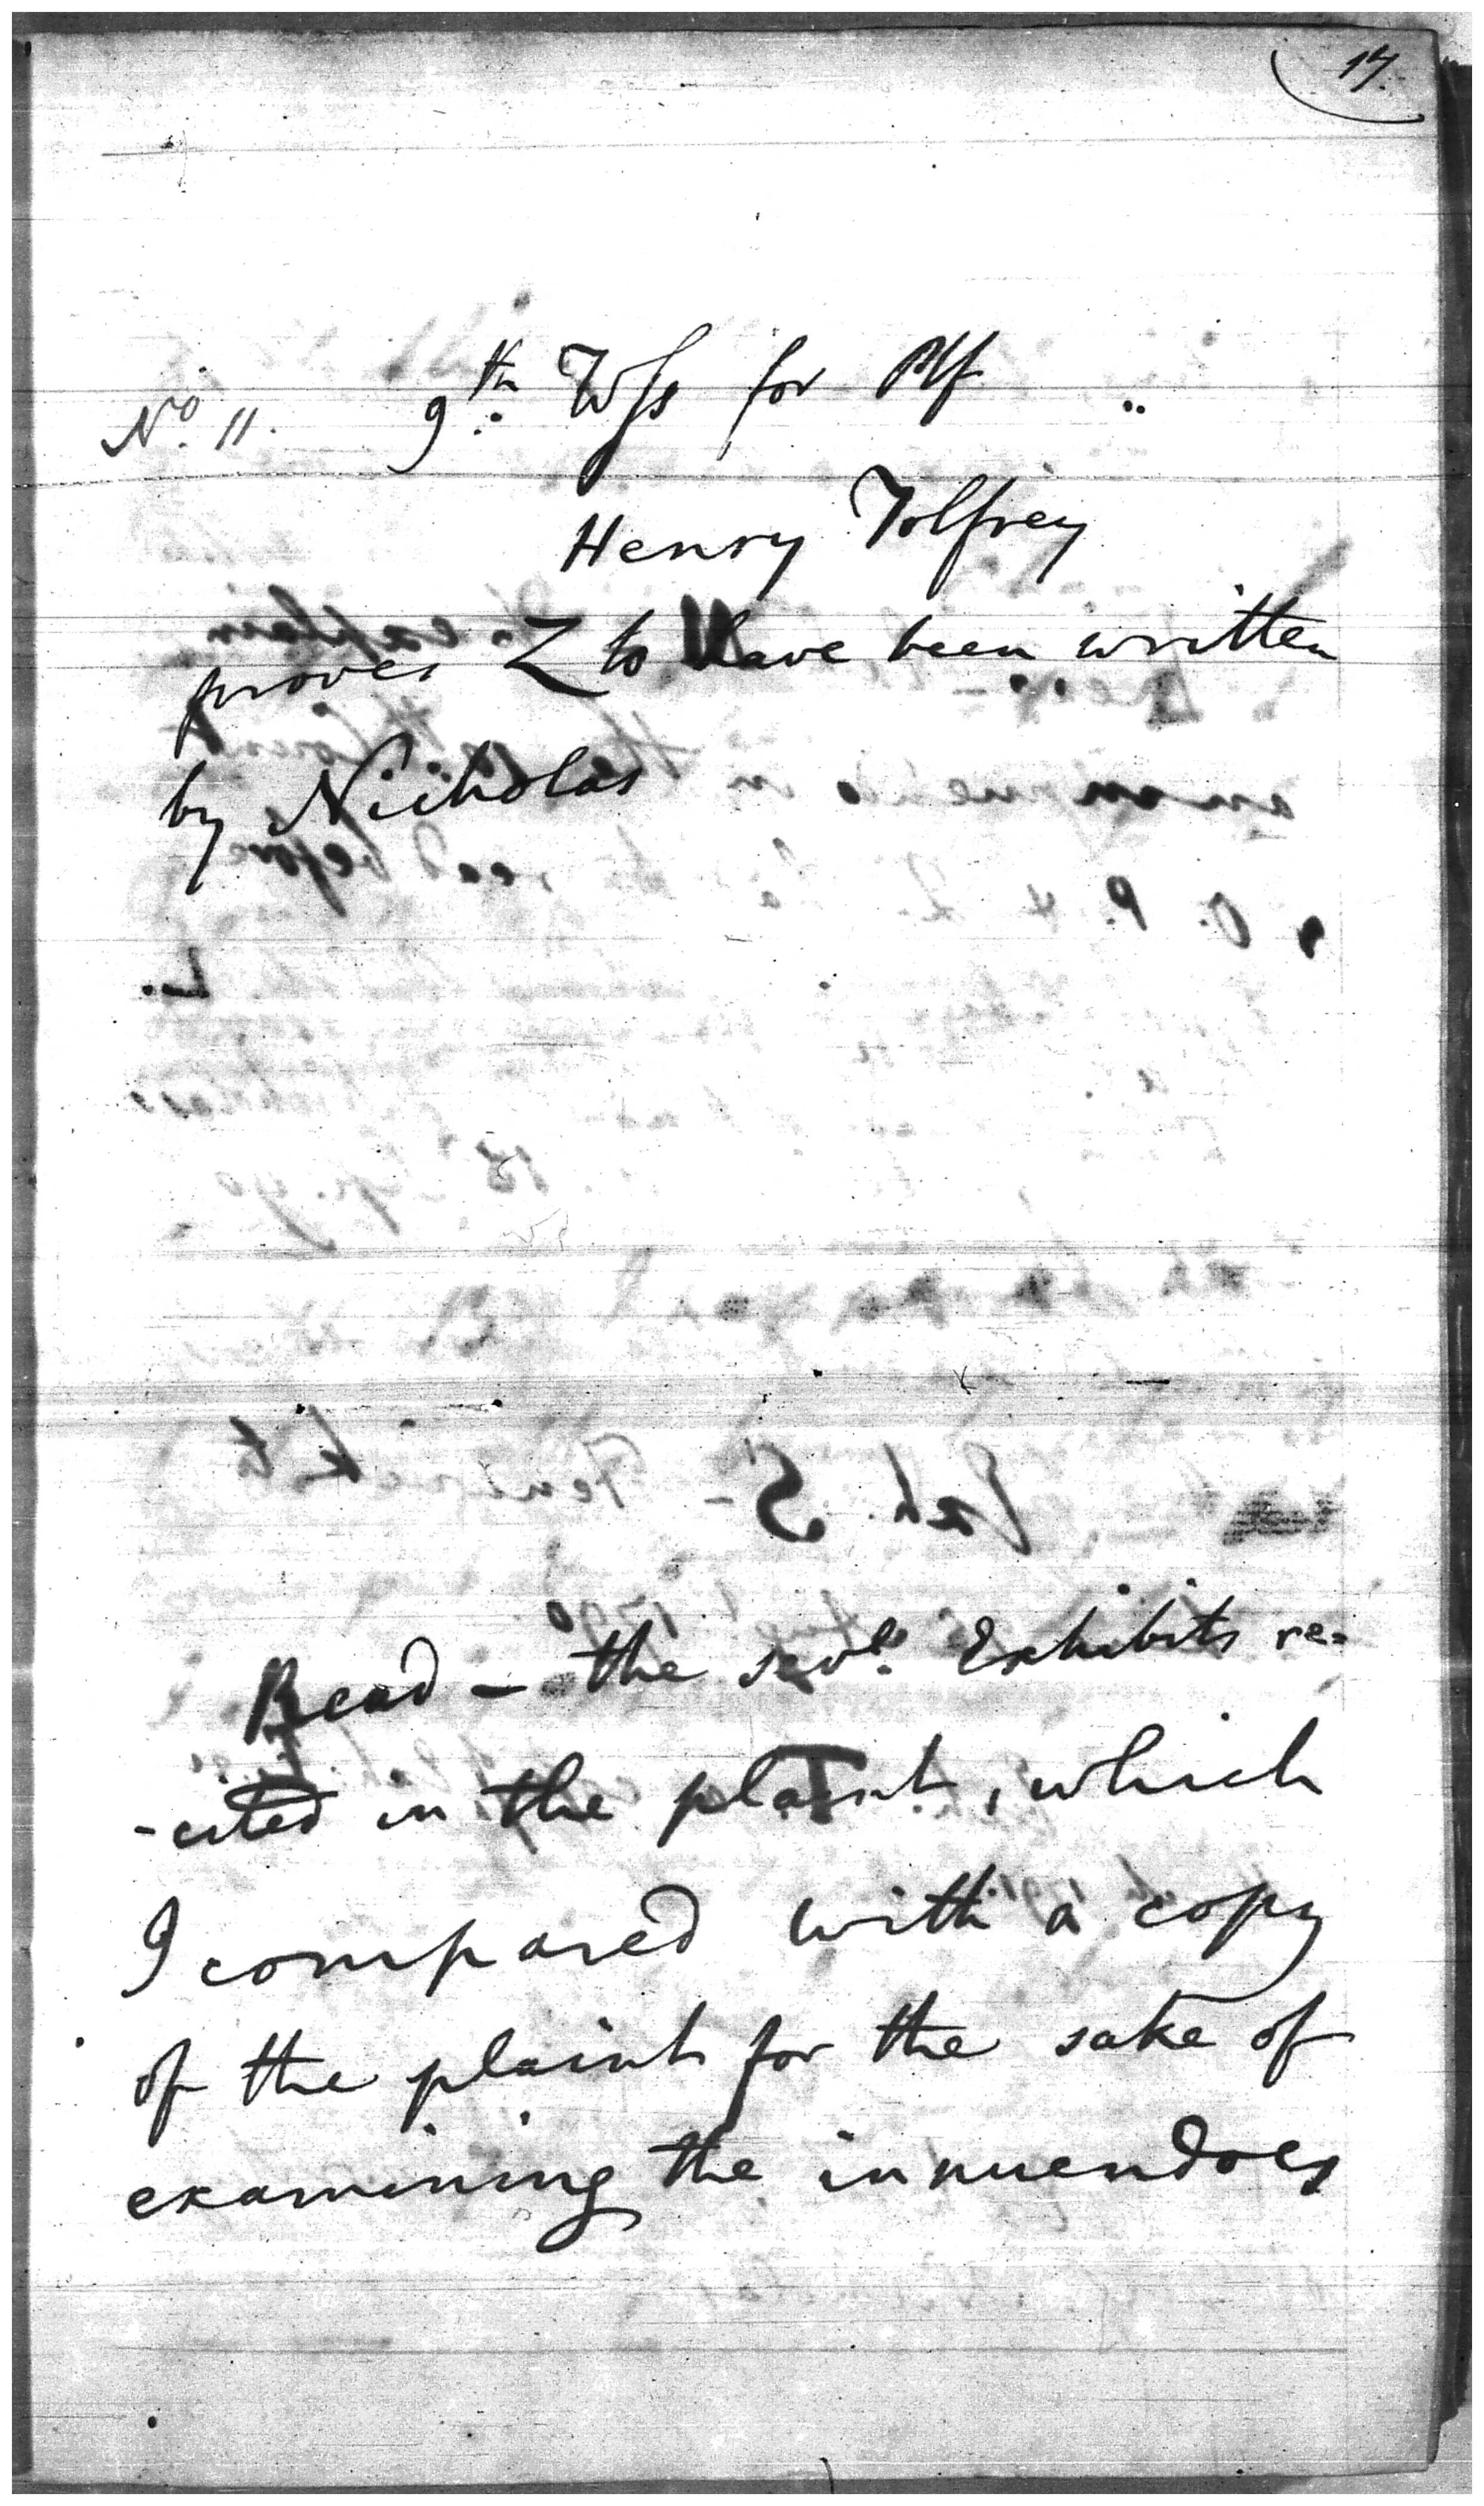 17.
No. 11. 9th. Wss for Plf
Henry Tolfrey
proves Z to have been written
by Nicholas
Read – the sevl. Exhibits re-
-cited in the plaint, which
I compared with a copy
of the plaint for the sake of
examining the innuendoes